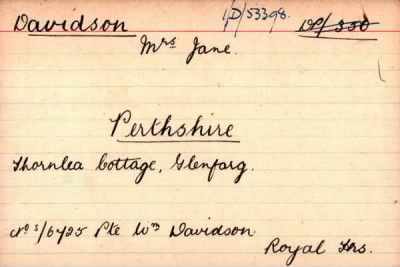 Davidson 1/D/53398. DP/350
Mrs Jane.
Perthshire
Thornlea Cottage, Glenfarg.
No S/6725 Pte Wm Davidson
Royal Hrs.